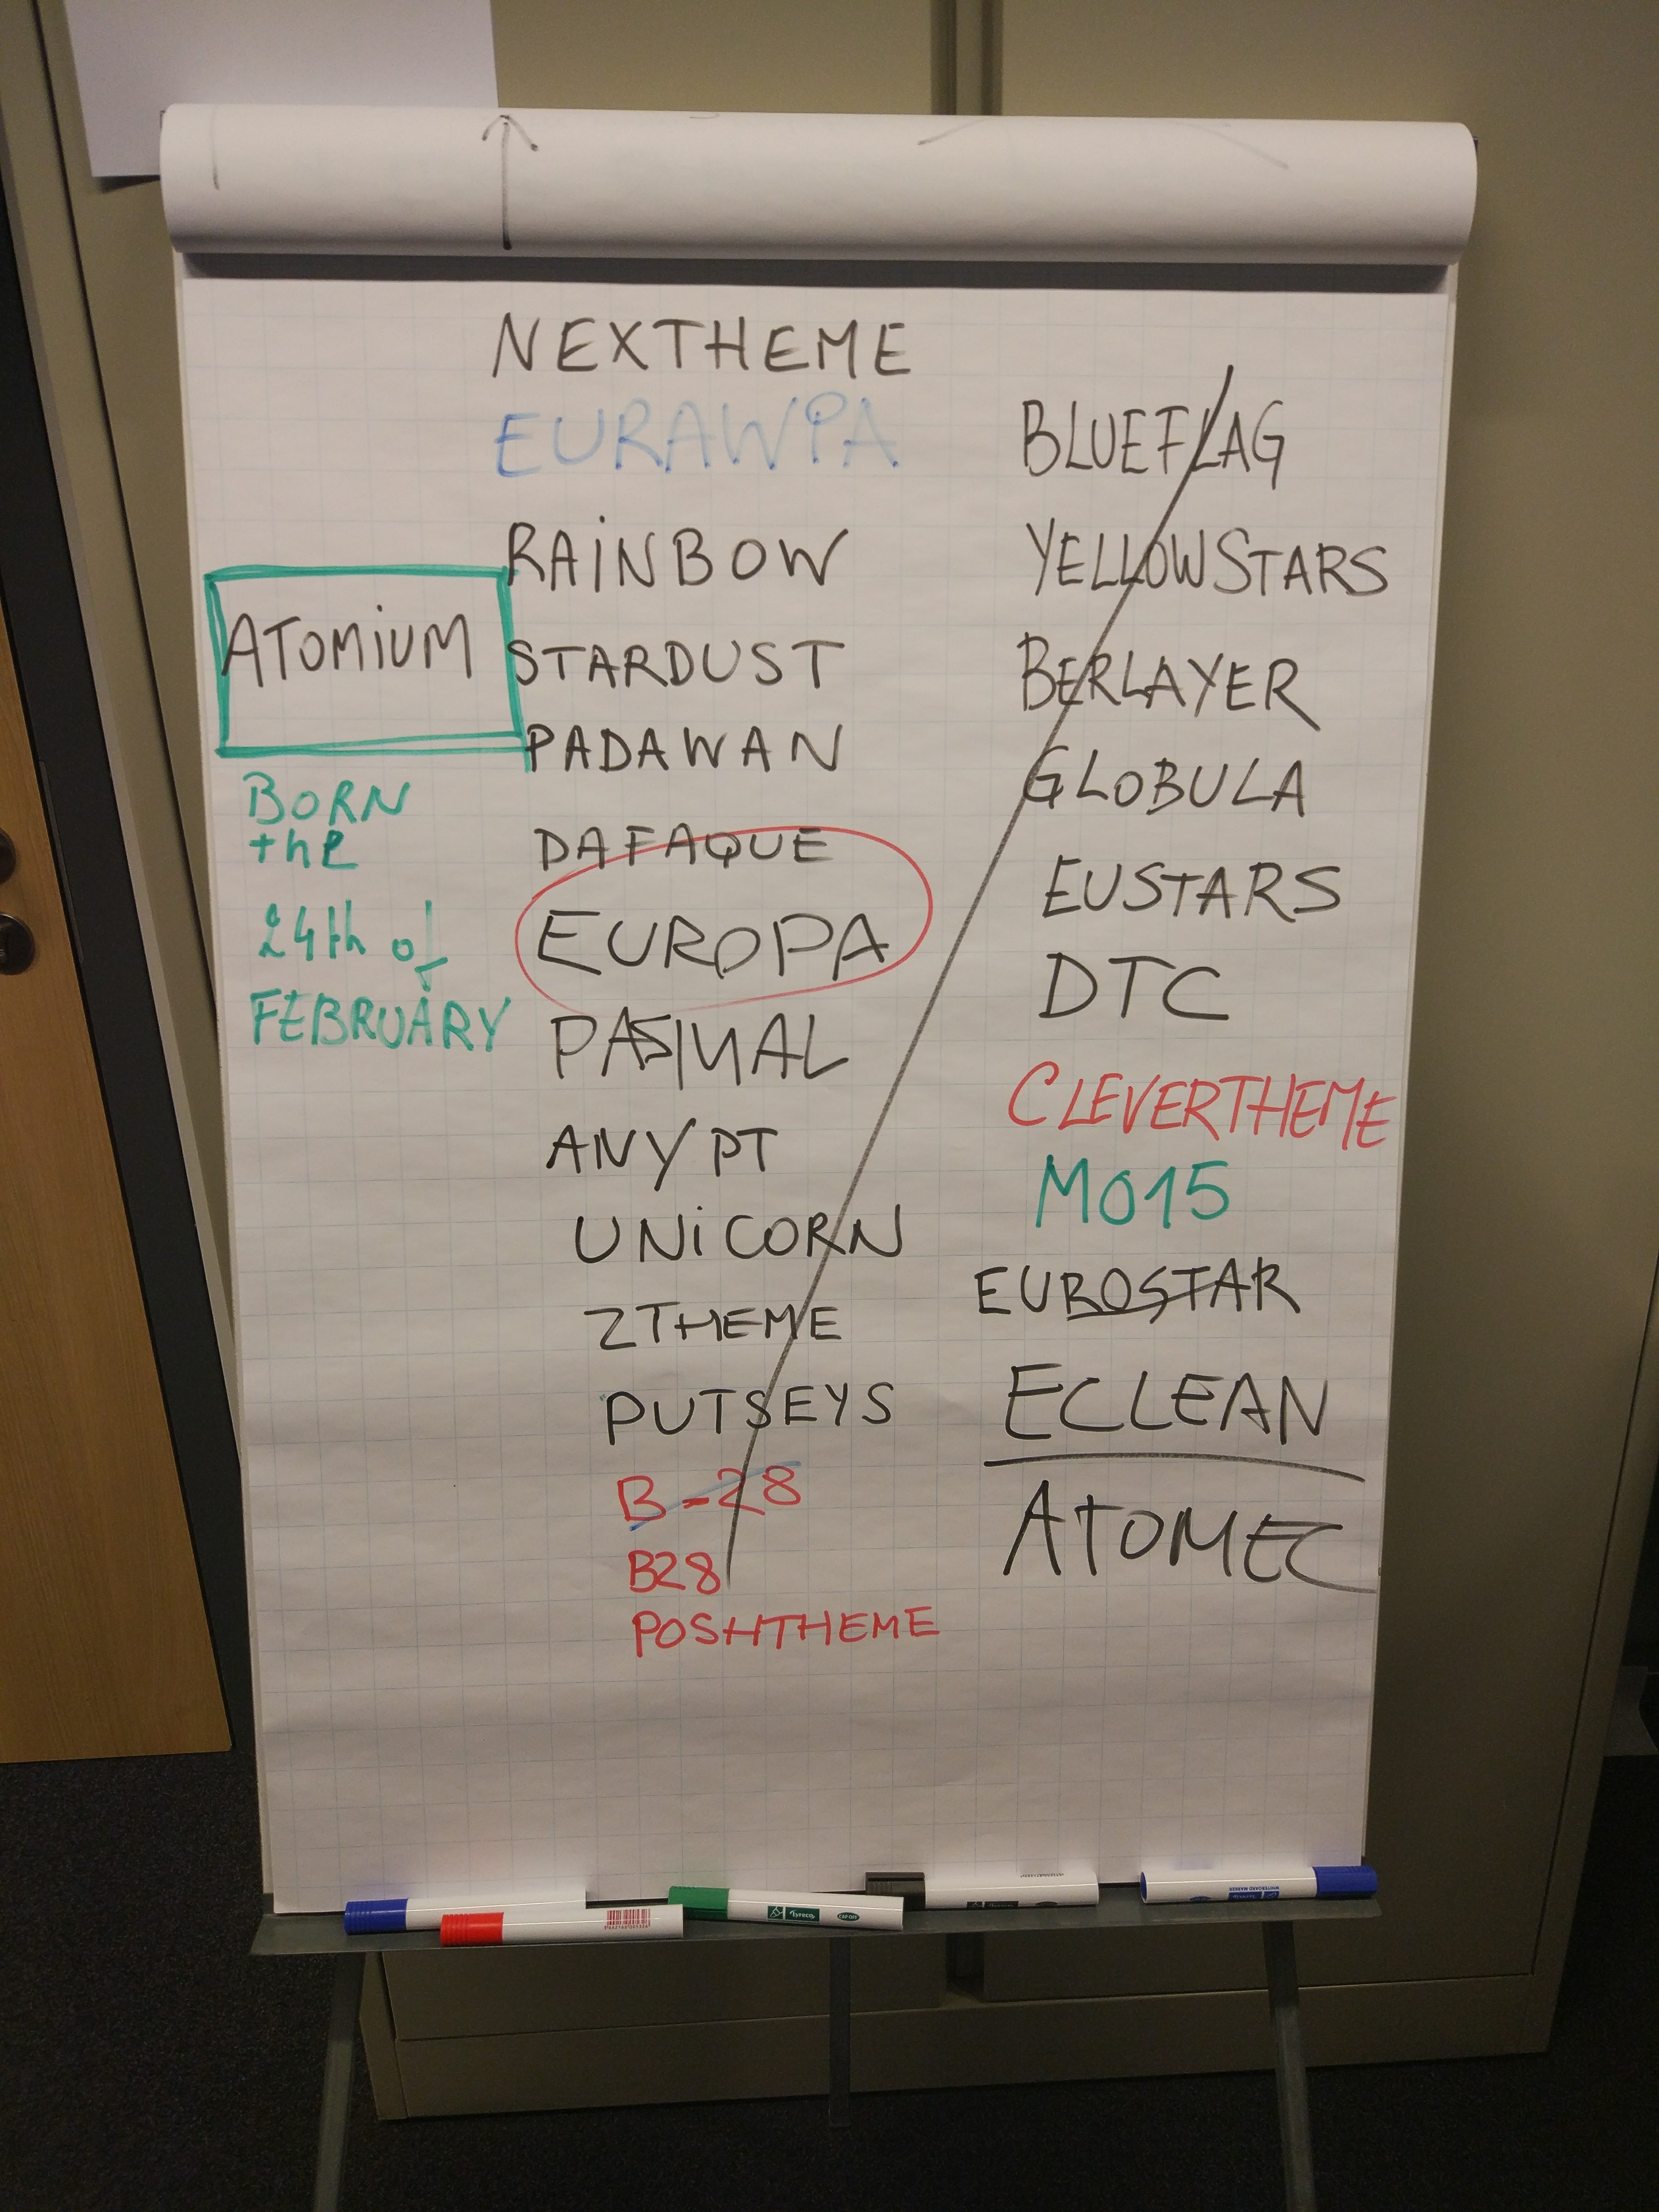 NEXTHEME
EURAWPA
RAiNBOW
STARDUST
PADAWAN
DAFAQUE
EUROPA
ANY PT
UNiCORN
ZTHEME
PUTSEYS
B-28
B28
POSHTHEME
ATOMiUM
BORN
the
24th of
FEBRUARY
BLUEFLAG
YELLOWSTARS
BERLAYER
GLOBULA
EUSTARS
DTC
CLEVERTHEME
M015
EUROSTAR
ECLEAN
ATOMEC
Lyreco
WHITEBOARD MARKER